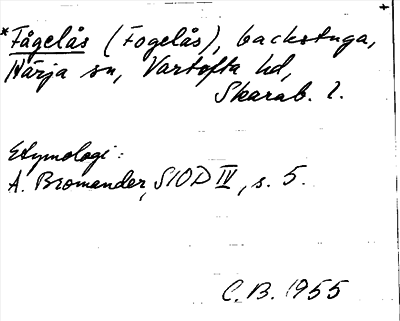 +
*Fågelås (Fogelås), backstuga,
Närja sn, Vartofta hd,
Skarab. l.
Etymologi:
A. Bromander, SIOD IV, s. 5.
C.B. 1955